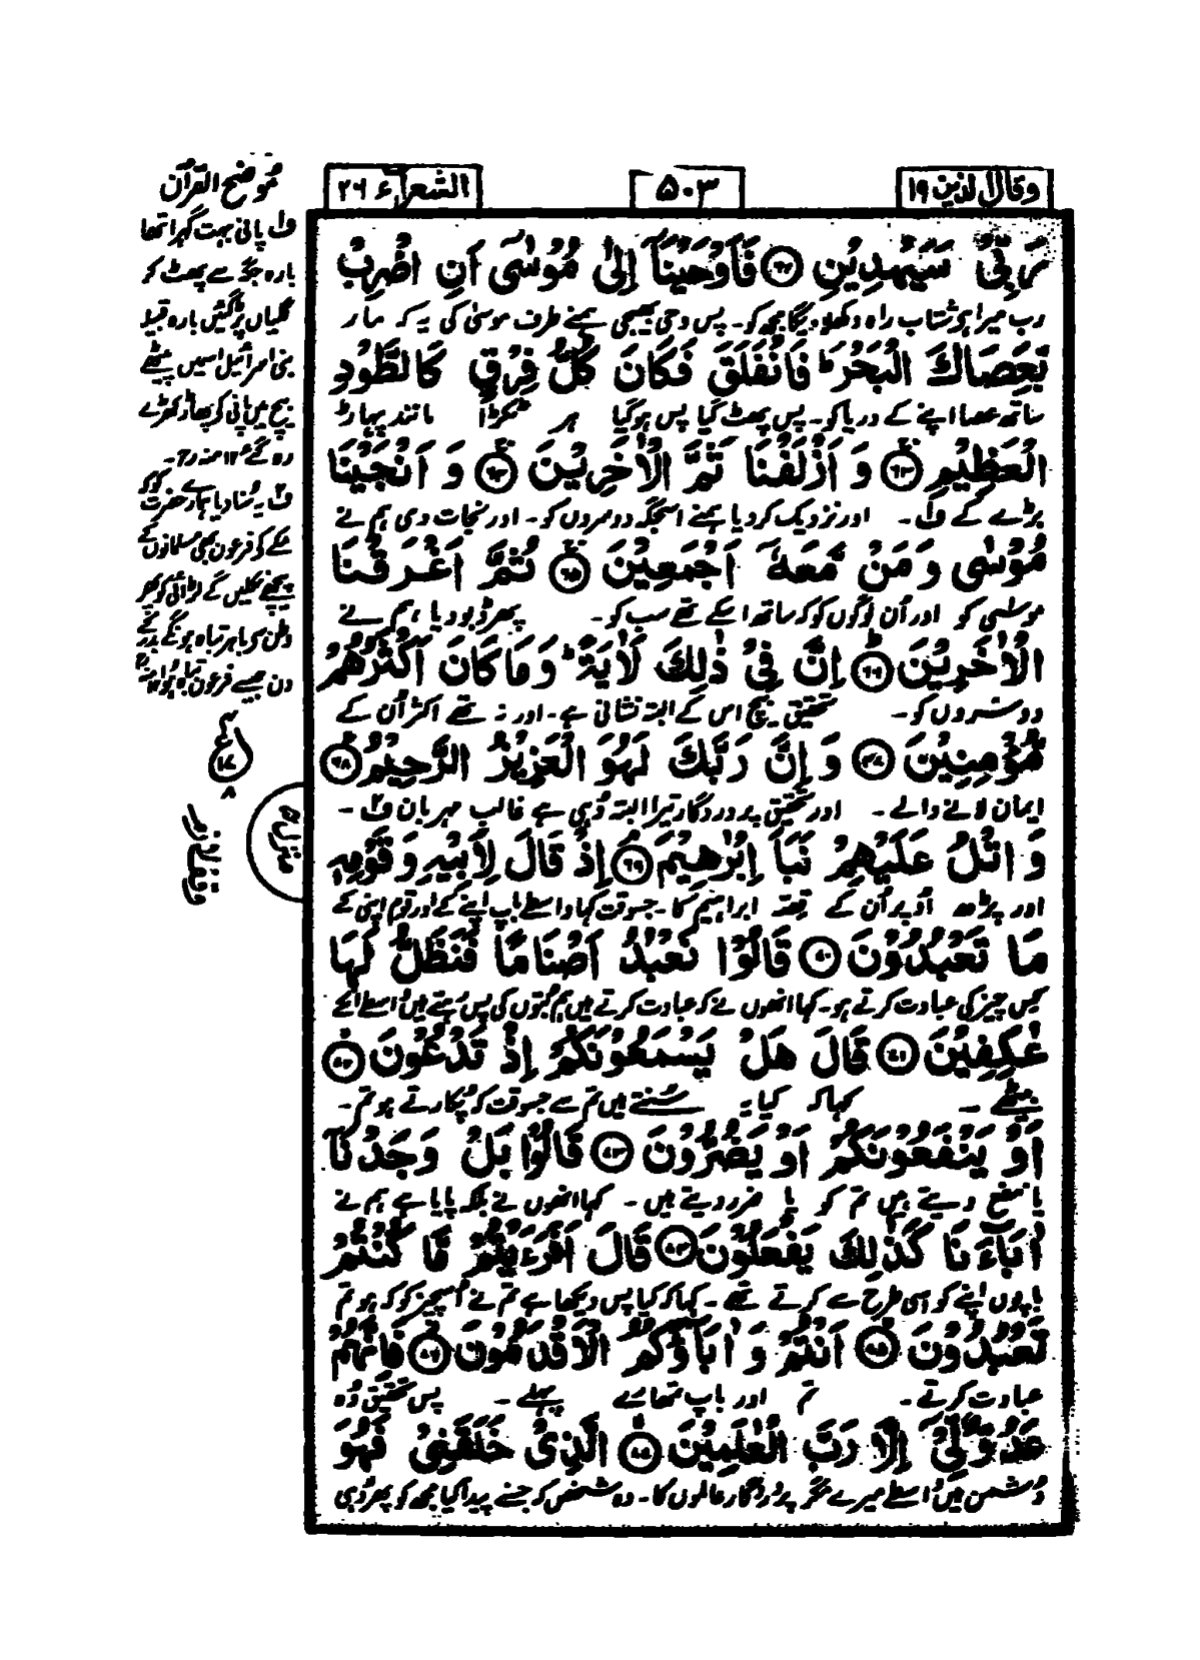 وقال الذین ۱۹
۵۰۳
الشعراء ۲۶
رَبِّیْ سَیَهْدِیْنِ ﴿۶۲﴾ فَاَوْحَیْنَاۤ اِلٰی مُوْسٰۤی اَنِ اضْرِبْ
رب میرا ہے شتاب راہ دکھلا دیگا مجھ کو۔ پس وحی بھیجی ہمنے طرف موسیٰ کی یہ کہ مار
بِّعَصَاكَ الْبَحْرَ ؕ فَانْفَلَقَ فَكَانَ كُلُّ فِرْقٍ كَالطَّوْدِ
ساتھ عصا اپنے کے دریا کو۔ پس پھٹ گیا پس ہوگیا ہر ٹکڑا مانند پہاڑ
الْعَظِیْمِ ﴿۶۳﴾ وَ اَزْلَفْنَا ثَمَّ الْاٰخَرِیْنَ ﴿۶۴﴾ وَ اَنْجَیْنَا
بڑے کے ف۱۔ اور نزدیک کر دیا ہمنے اسجگہ دوسروں کو۔ اور نجات دی ہم نے
مُوْسٰی وَ مَنْ مَّعَهٗۤ اَجْمَعِیْنَ ﴿۶۵﴾ ثُمَّ اَغْرَقْنَا
موسٰی کو اور اُن لوگوں کو کہ ساتھ اسکے تھے سب کو۔ پھر ڈبودیا ہم نے
الْاٰخَرِیْنَ ﴿۶۶﴾ اِنَّ فِیْ ذٰلِكَ لَاٰیَةً ؕ وَ مَا كَانَ اَكْثَرُهُمْ
دوسروں کو۔ تحقیق بیچ اس کے البتہ نشانی ہے۔ اور نہ تھے اکثر اُن کے
مُّؤْمِنِیْنَ ﴿۶۷﴾ وَ اِنَّ رَبَّكَ لَهُوَ الْعَزِیْزُ الرَّحِیْمُ ﴿۶۸﴾
ایمان لانے والے۔ اور تحقیق پروردگار تیرا البتہ وُہی ہے غالب مہربان ف۲۔
وَ اتْلُ عَلَیْهِمْ نَبَاَ اِبْرٰهِیْمَ ﴿۶۹﴾ اِذْ قَالَ لِاَبِیْهِ وَ قَوْمِهٖ
اور پڑھ اُوپر اُن کے قصّہ ابراہیم کا۔ جسوقت کہا واسطے باپ اپنے کے اور قوم اپنی کے
مَا تَعْبُدُوْنَ ﴿۷۰﴾ قَالُوْا نَعْبُدُ اَصْنَامًا فَنَظَلُّ لَهَا
کس چیز کی عبادت کرتے ہو۔ کہا انھوں نے کہ عبادت کرتے ہیں ہم بُتوں کی پس رہتے ہیں واسطے انکے
عٰكِفِیْنَ ﴿۷۱﴾ قَالَ هَلْ یَسْمَعُوْنَكُمْ اِذْ تَدْعُوْنَ ﴿۷۲﴾
بیٹھے۔ کہا کہ کیا یہ سُنتے ہیں تم سے جسوقت کہ پُکارتے ہو تم۔
اَوْ یَنْفَعُوْنَكُمْ اَوْ یَضُرُّوْنَ ﴿۷۳﴾ قَالُوْا بَلْ وَجَدْنَاۤ
یا نفع دیتے ہیں تم کو یا ضرر دیتے ہیں۔ کہا انھوں نے بلکہ پایا ہے ہم نے
اٰبَآءَنَا كَذٰلِكَ یَفْعَلُوْنَ ﴿۷۴﴾ قَالَ اَفَرَءَیْتُمْ مَّا كُنْتُمْ
باپوں اپنے کو اسی طرح سے کرتے تھے۔ کہا کہ کیا پس دیکھا ہے تم نے اُسچیز کو کہ ہو تم
تَعْبُدُوْنَ ﴿۷۵﴾ اَنْتُمْ وَ اٰبَآؤُكُمُ الْاَقْدَمُوْنَ ﴿۷۶﴾ فَاِنَّهُمْ
عبادت کرتے۔ تم اور باپ تمھارے پہلے۔ پس تحقیق وُہ
عَدُوٌّ لِّیْۤ اِلَّا رَبَّ الْعٰلَمِیْنَ ﴿۷۷﴾ الَّذِیْ خَلَقَنِیْ فَهُوَ
دُشمن ہیں واسطے میرے مگر پروردگار عالموں کا۔ وہ شخص کہ جسنے پیدا کیا مجھ کو پھر وُہی
مُوضح القرآن
ف۱ پانی بہت گہرا تھا
بارہ جگہ سے پھٹ کر
گلیاں پڑگئیں بارہ قبیلہ
بنی اسرائیل اسمیں پیٹھے
بیچ میں پانی کو پھاڑ کھڑے
رہ گئے ۱۲ منہ رح۔
ف۲ یہ سُنا دیا ہمارے حضرت کو کہ
مکے کے فرعون بھی مسلمانوں کے
پیچھے نکلیں گے لڑائی کو پھر
وطن سی باہر تباہ ہونگے بدر کے
دن جیسے فرعون تباہ ہوا ۱۲ منہ رح
ع
۱۷
۸
منزل ۵
وقف لازم